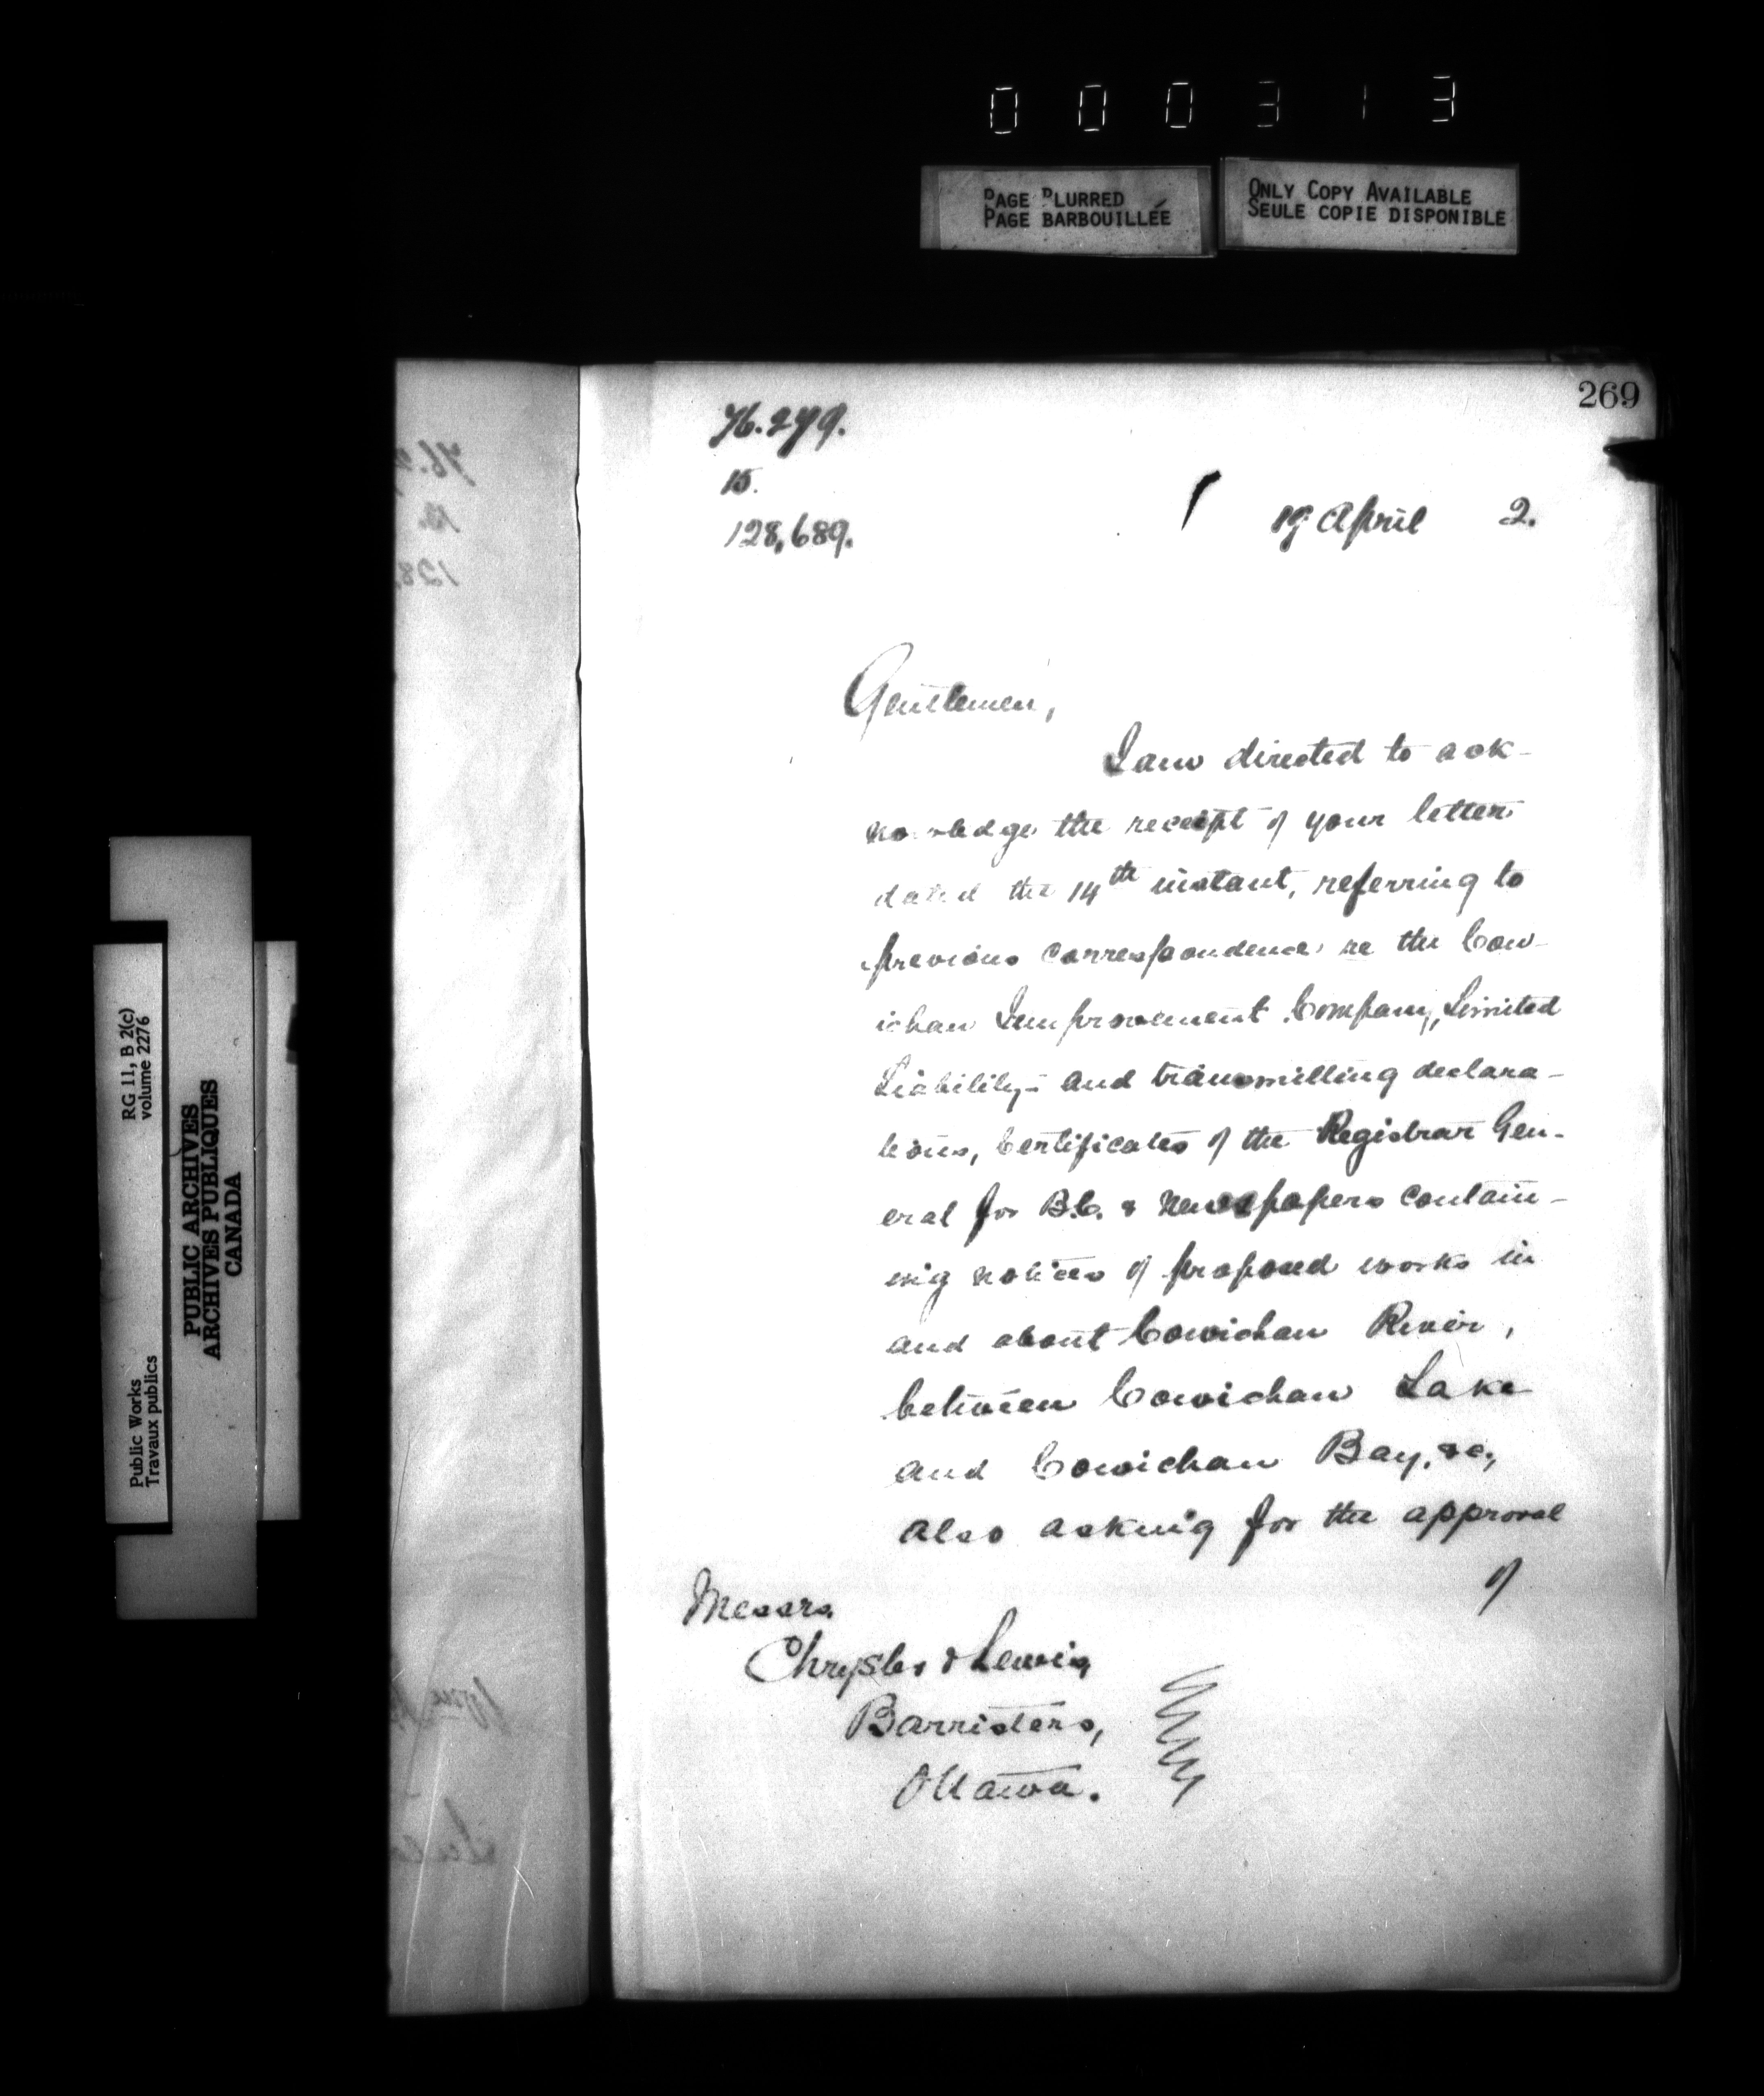 000313
PAGE BLURRED
PAGE BARBOUILLÉE
ONLY COPY AVAILABLE
SEULE COPIE DISPONIBLE
269
76.279.
15.
128,689.
19 April 2.
Gentlemen,
I am directed to ack-
nowledge the receipt of your letter
dated the 14th instant, referring to
previous correspondence re the Cow-
ichan Improvement Company, Limited
Liability,- and transmitting declara-
tions, Certificates of the Registrar Gen-
eral for B.C. & Newspapers contain-
ing notices of proposed works in
and about Cowichan River,
between Cowichan Lake
and Cowichan Bay, &c.,
also asking for the approval
of
Messrs.
Chrysler & Lewis,
Barristers,
Ottawa.
RG 11, B 2(c)
volume 2276
Public Works
Travaux publics
PUBLIC ARCHIVES
ARCHIVES PUBLIQUES
CANADA